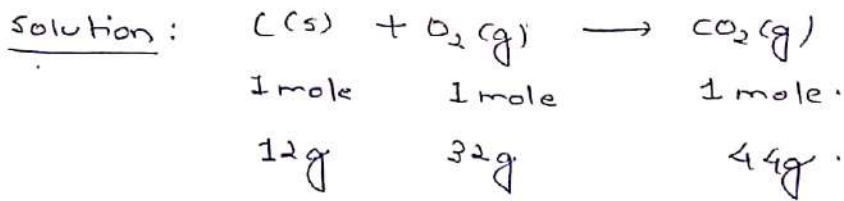 Solution : C(s) + O₂(g) ⟶ CO₂(g)
1 mole 1 mole 1 mole.
12g 32g. 44g.